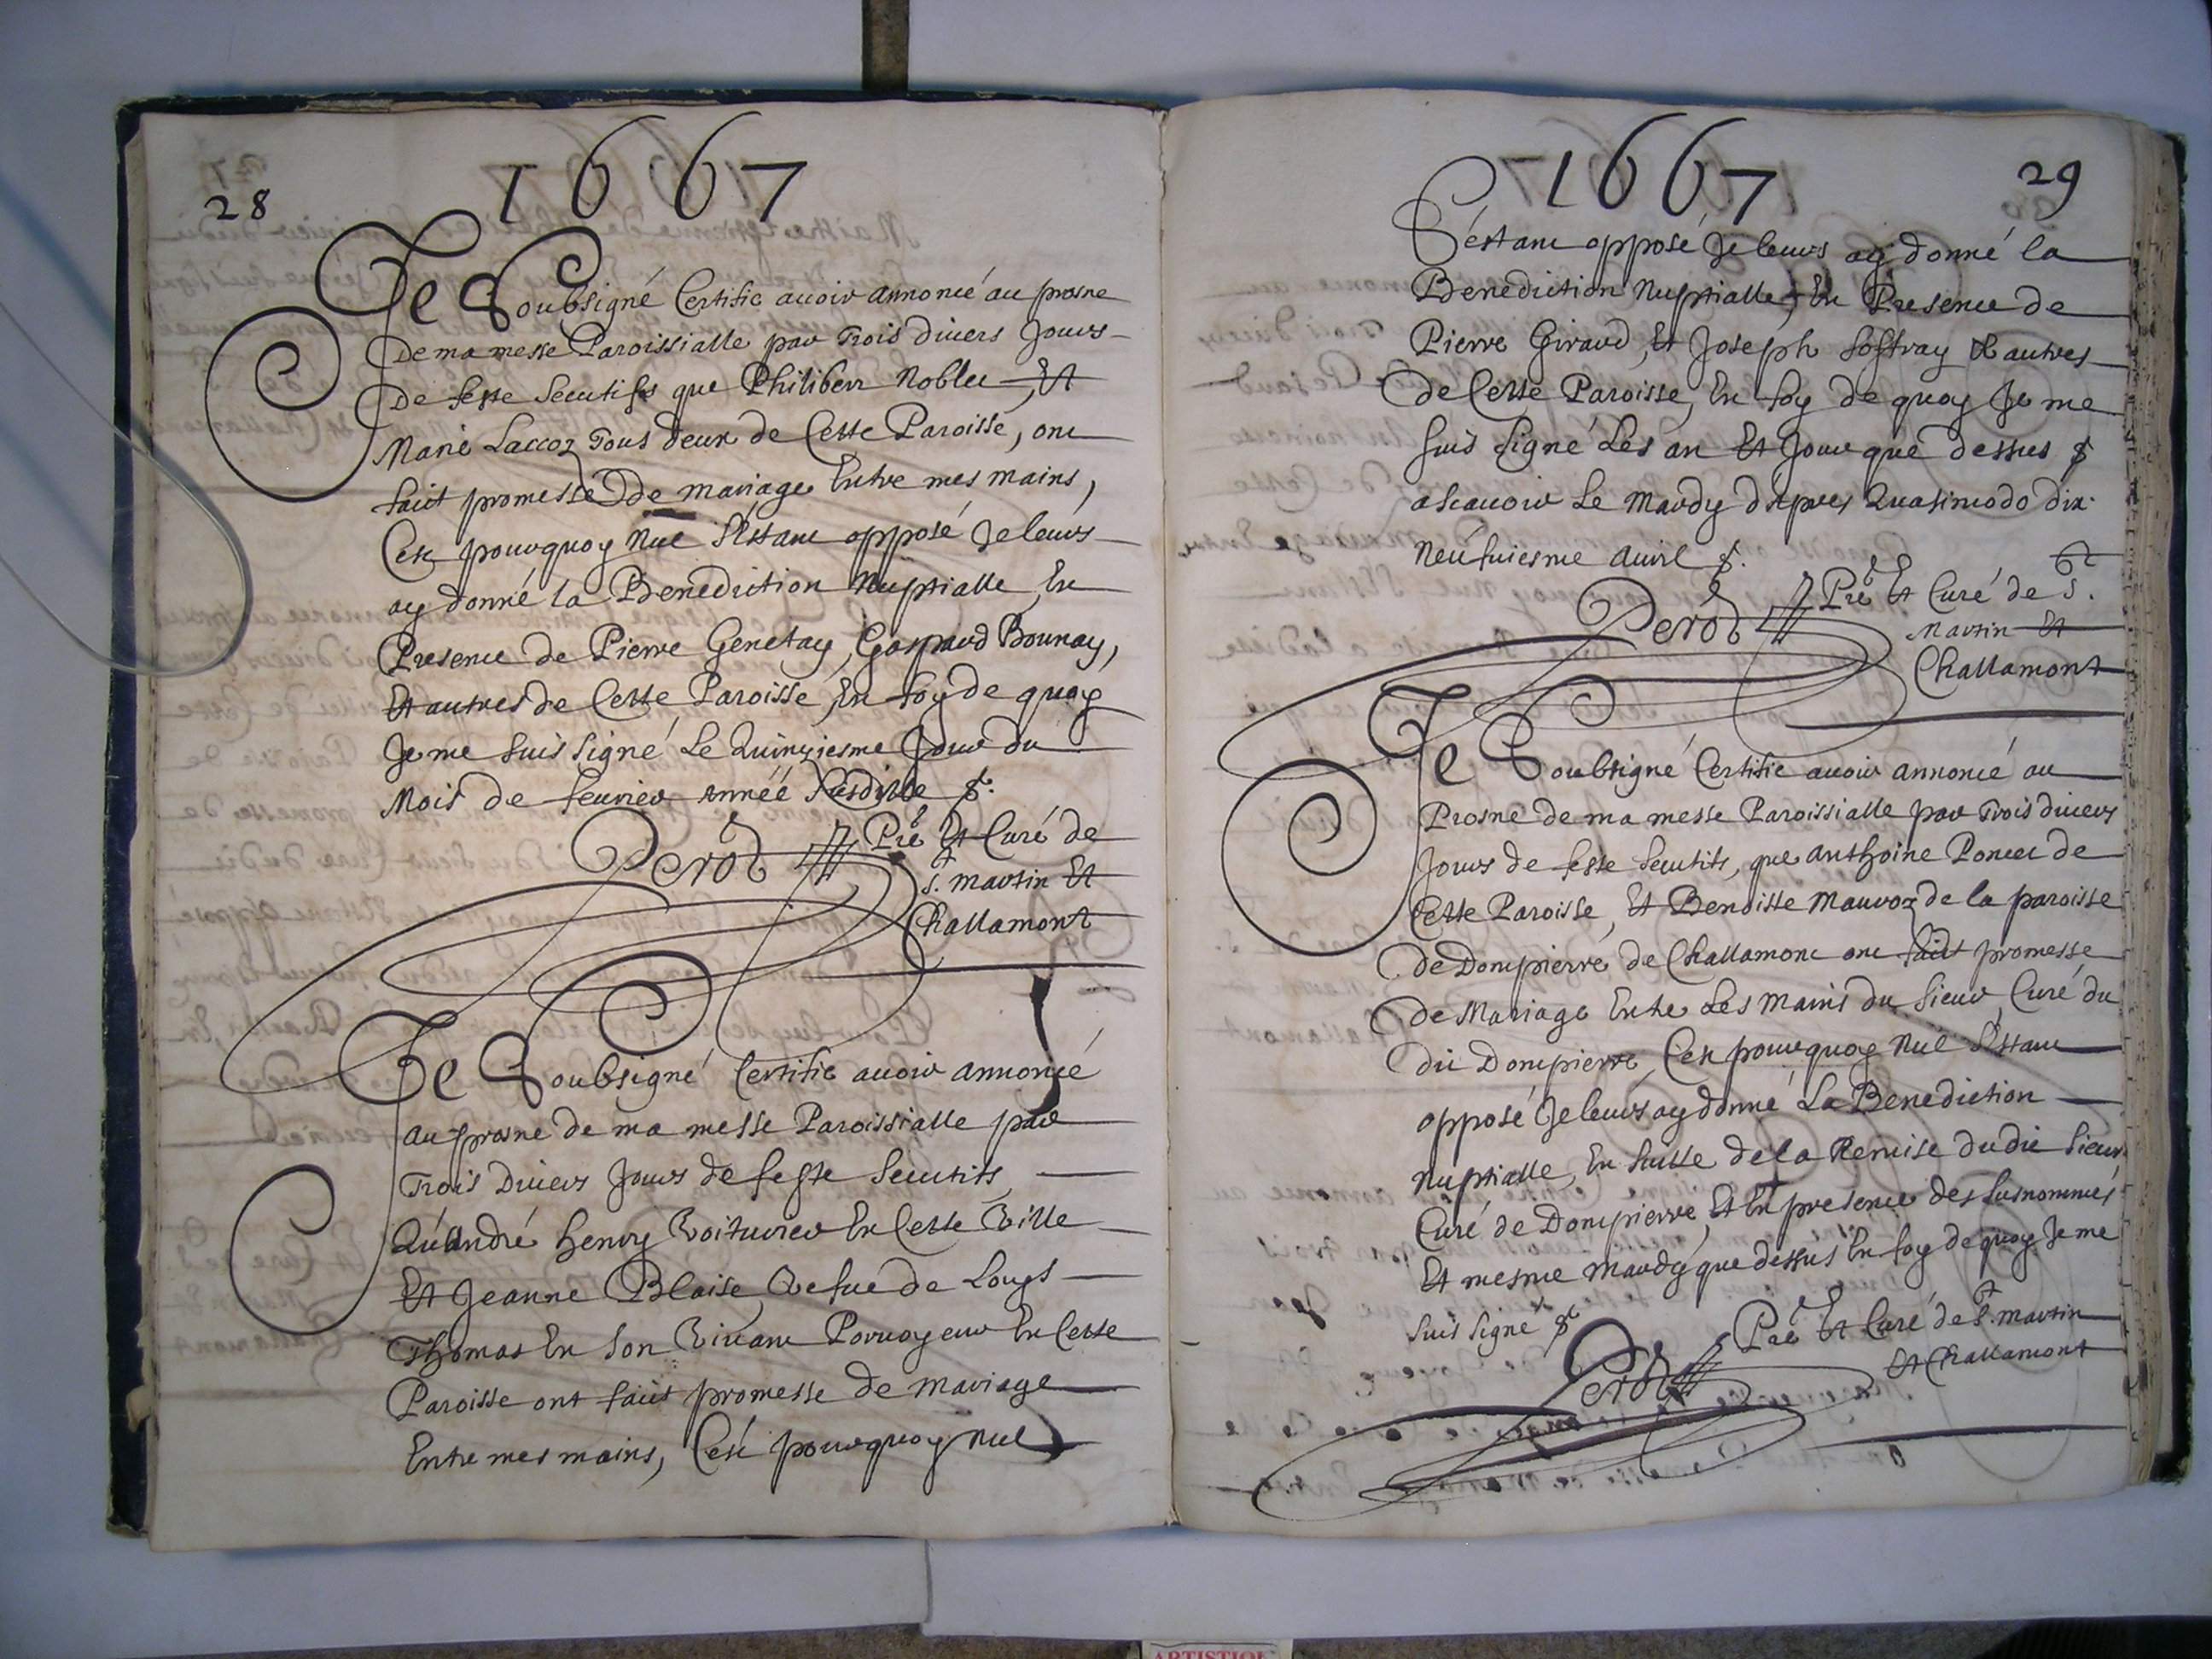 28
1667
Je Soubsigné Certifie avoir annoncé au prosne
De ma messe Paroissialle par Trois divers Jours
De feste Secutifs que Philibert Noblet Et
Marie Laccoz Tous deux de Cette Paroisse, ont
faict promesse De mariage Entre mes mains,
C'est pourquoy Nul S'estant opposé Je leurs
ay donné la Benediction Nuptialle, En
Presence de Pierre Genetay, Gaspard Bournay,
Et autres de Cette Paroisse, En foy de quoy
Je me suis signé Le Quinziesme Jour du
Mois de feuvrier Année Susditte
Perod Pre Et Curé de
St. Martin Et
Challamont
Je Soubsigné Certifie avoir annoncé
au prosne de ma messe Paroissialle par
Trois Divers Jours de feste Secutifs
Qu'André henry Voiturier En Cette Ville
Et Jeanne Blaise Vefue de Louys
Thomas En Son Vivant Porvoyeur En Cette
Paroisse ont faict promesse de mariage
Entre mes mains, C'est pourquoy nul
1667
29
S'estant opposé Je leurs ay donné la
Benediction Nuptialle, En Presence de
Pierre Giraud, Et Joseph Soffray & autres
de Cette Paroisse, En foy de quoy Je me
suis signé Les an Et Jour que dessus
ascavoir Le Mardy d'apres Quasimodo dix
Neufuiesme Auvil
Perod Pre Et Curé de St.
Martin Et
Challamont
Je Soubsigné Certifie avoir annoncé au
Prosne de ma messe Paroissialle par Trois divers
Jours de feste Secutifs, que Anthoine Poncet de
Cette Paroisse, Et Benoiste Mauvoz de la paroisse
de Dompierre de Challamont ont faict promesse
de Mariage Entre Les Mains du Sieur Curé du
dit Dompierre, C'est pourquoy Nul S'estant
opposé Je leurs ay donné La Benediction
Nuptialle, En suitte de la Remise dudit Sieur
Curé de Dompierre, Et En presence des susnommés
Et mesme Mardy que dessus En foy de quoy Je me
suis signé
Perod Pre Et Curé de St. Martin
Et Challamont